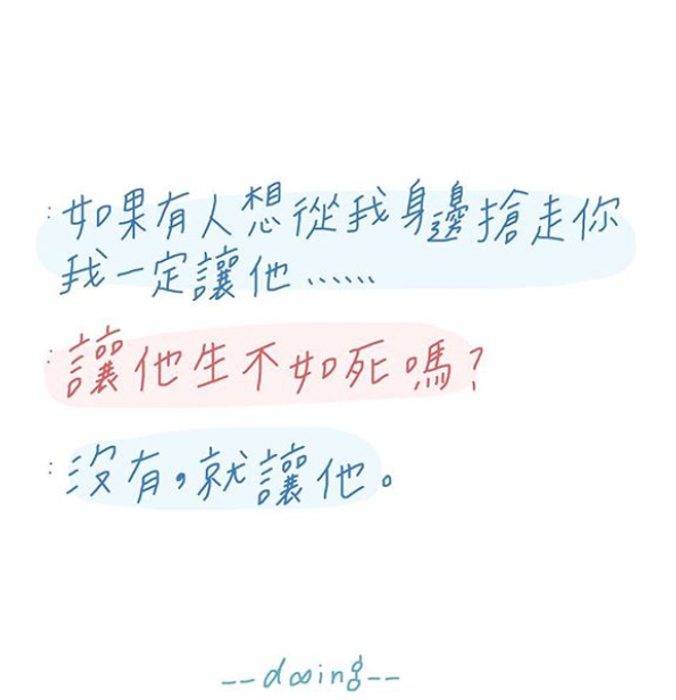 :如果有人想從我身邊搶走你
我一定讓他……
:讓他生不如死嗎?
:沒有,就讓他。
--dooing--